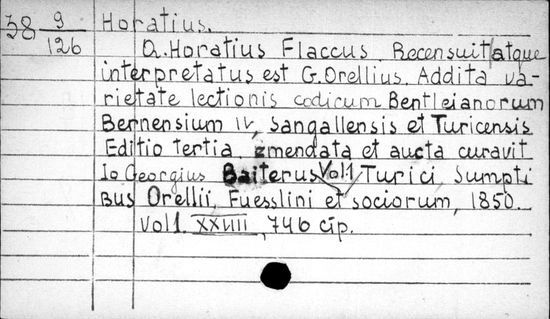 38 9/126 Horatius.
Q. Horatius Flaccus. Recensuit atque
interpretatus est G. Orellius. Addita va-
rietate lectionis codicum Bentleianorum
Bernensium IV, Sangallensis et Turicensis
Editio tertia emendata et aucta curavit
Io Georgius Baiterus Vol 1 Turici Sumpti
bus Orellii, Fuesslini et sociorum, 1850.
Vol 1. XXVIII, 746 стр.